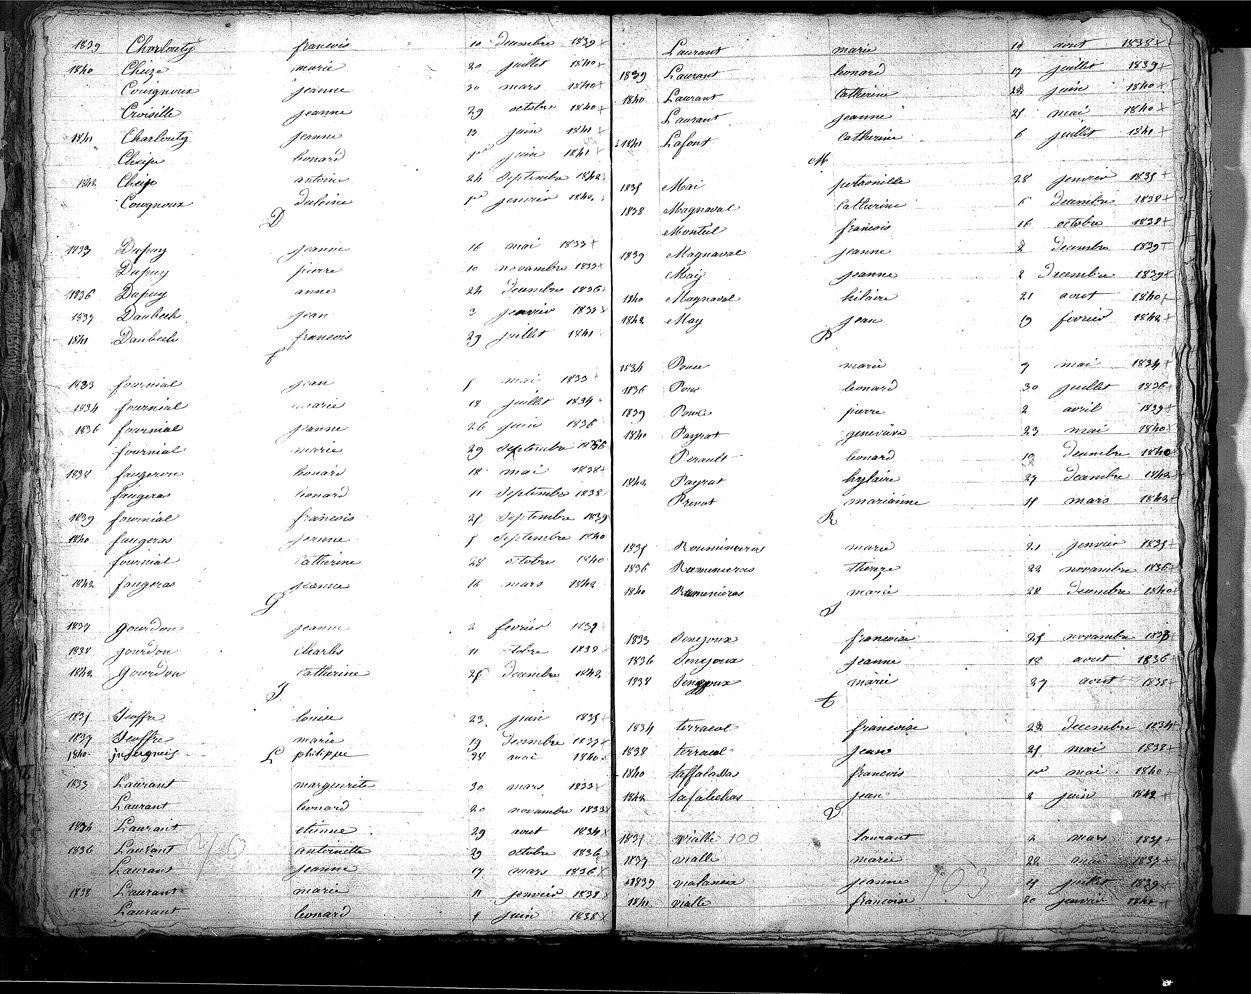 1839 Charlouty francois 10 decembre 1839
1840 Cheize marie 20 juillet 1840
Cougnoux jeanne 30 mars 1840
Croisille jeanne 29 octobre 1840
1841 Charlouty jeanne 13 juin 1841
Cheize leonard 1er juin 1841
1842 Cheize antoine 24 Septembre 1842
Cougnoux 1er janvier 1842
D
1833 Dupuy jeanne 16 mai 1833
Dupuy pierre 10 novembre 1833
1836 Dupuy anne 24 decembre 1836
1837 Daubech jean 3 janvier 1837
1841 Daubech francois 29 juillet 1841
f
1833 fournial jean mai 1833
1834 fournial marie 18 juillet 1834
1836 fournial jeanne 26 juin 1836
fournial marie 29 Septembre 1836
1838 faugeron leonard 18 mai 1838
faugeras leonard 11 Septembre 1838
1839 fournial francois 25 Septembre 1839
1840 faugeras jeanne Septembre 1840
fournial catherine 28 octobre 1840
1842 faugeras jeanne 16 mars 1842
G
1837 gourdon jeanne 2 fevrier
1838 gourdon charles 11 octobre 1838
1842 gourdon catherine 25 decembre 1842
J
1835 Jeoffre louise 23 juin 1835
1837 Jeoffre marie 19 decembre 1837
1840 philippe 28 mai 1840
L
1833 Laurant marguerite 30 mars 1833
Laurant leonard 20 novembre 1833
1834 Laurant etienne 29 aout 1834
1836 Laurant antoinette 29 octobre 1836
Laurant jeanne 17 mars 1836
1838 Laurant marie 11 janvier 1838
Laurant leonard juin 1838
Laurant marie 12 aout 1838
1839 Laurant leonard 17 juillet 1839
1840 Laurant Catherine 22 juin 1840
Laurant jeanne 25 mai 1840
1841 Lafont Catherine 6 juillet 1841
M
1835 Mai petronille 28 janvier 1835
1838 Magnaval Catherine 6 decembre 1838
Monteil francois 16 octobre 1838
1839 Magnaval jeanne 2 decembre 1839
May jeanne 2 decembre 1839
1840 Magnaval hilaire 21 aout 1840
1842 May jean 19 fevrier 1842
P
1834 marie 7 mai 1834
1836 leonard 30 juillet 1836
1839 pierre 2 avril 1839
1840 Payrat genevieve 23 mai 1840
Perault leonard 19 decembre 1840
1842 Payrat hylaire 27 decembre 1842
Prevot marianne 11 mars 1842
R
1835 marie 21 janvier 1835
1836 Ramenieras therese 22 novembre 1836
1840 Ramenieras marie 28 decembre 1840
S
1833 Senejoux francoise 25 novembre 1833
1836 Senejoux jeanne 18 aout 1836
1838 Senejoux marie 27 aout 1838
t
1834 terracol francoise 23 decembre 1834
1838 terracol jean 25 mai 1838
1840 taffaladas francois 1er mai 1840
1842 tafalechas jean 2 juin 1842
V
1835 vialle 100 laurant 2 mars 1835
1837 vialle marie 22 mai 1837
1839 valancia jeanne 11 juillet 1839
1841 vialle francoise 20 janvier